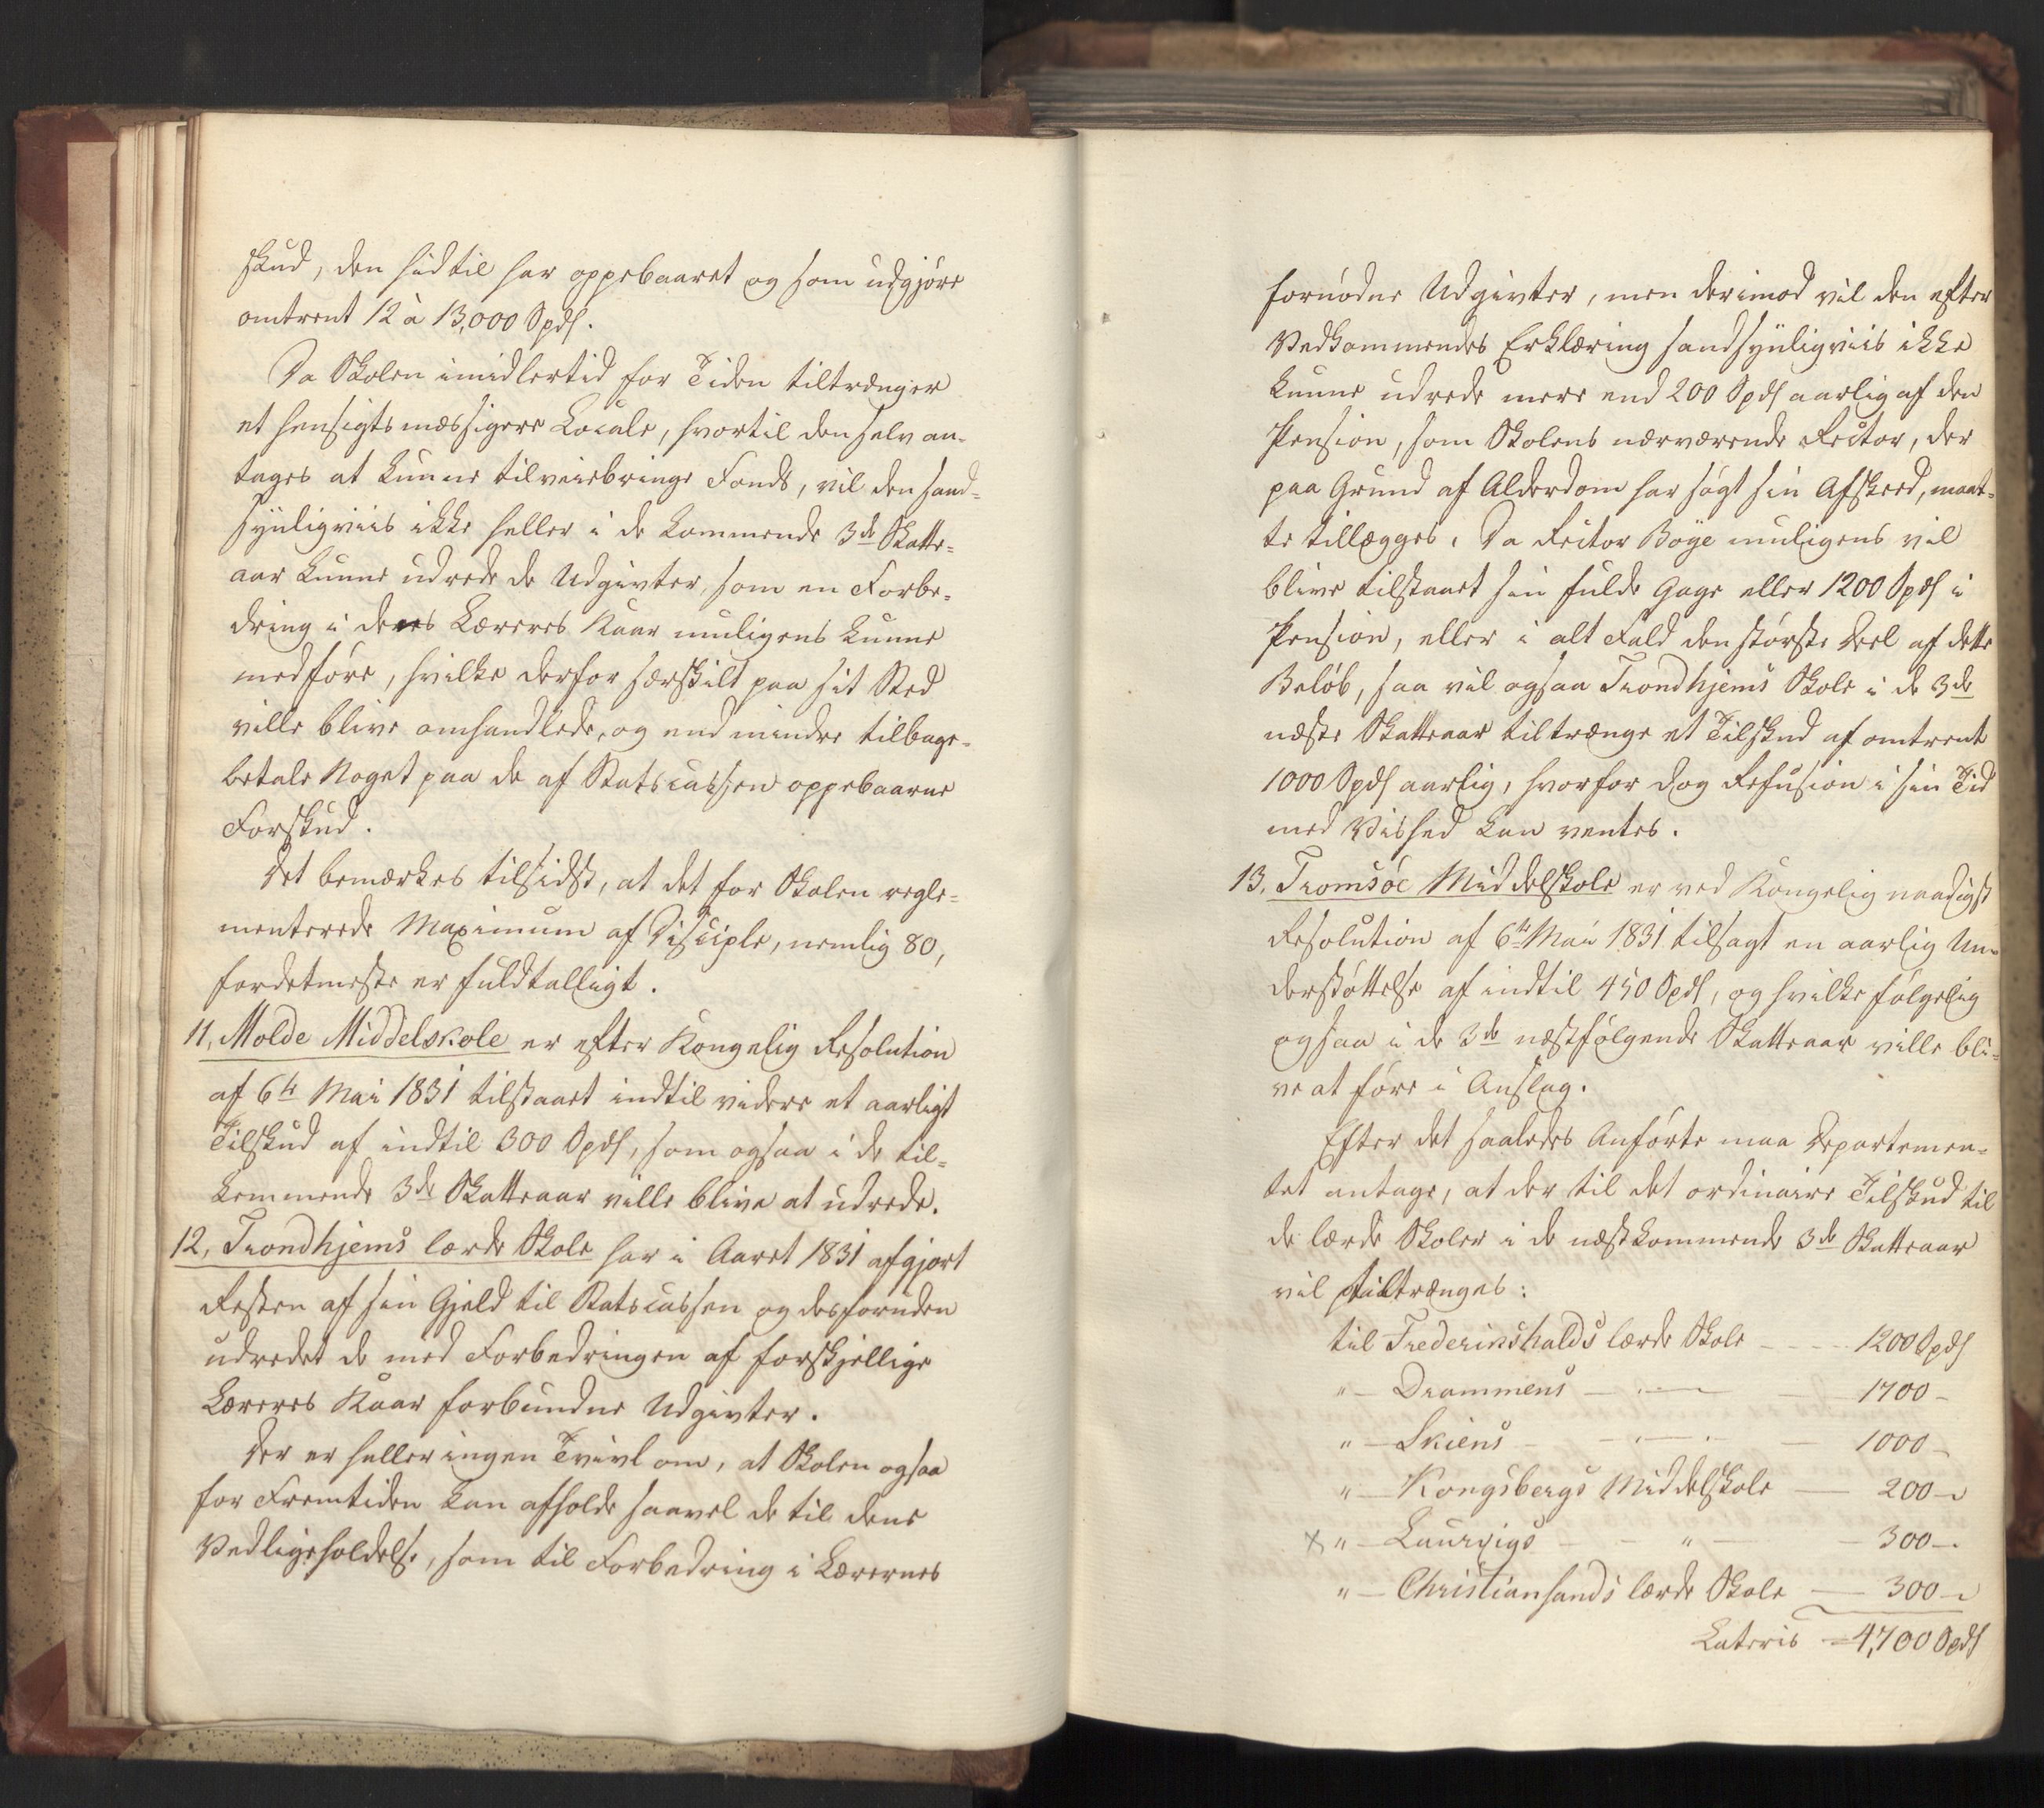 skud, den hidtil har oppebaaret og som udgjøre
omtrent 12 à 13,000 Spds.
Da Skolen imidlertid for Tiden tiltrænger
et hensigtsmæssigere Locale, hvortil den selv an-
tages at kunne tilveiebringe Fonds, vil den sand-
synligviis ikke heller i de kommende 3de Skatte-
aar kunne udrede de Udgivter, som en Forbe-
dring i deres Læreres Kaar muligens kunne
medføre, hvilke derfor særskilt paa sit Sted
ville blive omhandlede, og end mindre tilbage-
betale Noget paa de af Statscassen oppebaarne
Forskud.
Det bemærkes tilsidst, at det for Skolen regle-
menterede Maximum af Disciple, nemlig 80,
fordetmeste er fuldtalligt.
11, Molde Middelskole er efter Kongelig Resolution
af 6te Mai 1831 tilstaaet indtil videre et aarligt
Tilskud af indtil 300 Spds, som ogsaa i de til-
kommende 3de Skatteaar ville blive at udrede.
12, Trondhjems lærde Skole har i Aaret 1831 afgjort
Resten af sin Gjeld til Statscassen og desforuden
udredet de med Forbedringen af forskjellige
Læreres Kaar forbundne Udgivter.
Der er heller ingen Tvivl om, at Skolen ogsaa
for Fremtiden kan afholde saavel de til dens
Vedligeholdelse, som til Forbedring i Lærernes
fornødne Udgivter, men derimod vil den efter
Vedkommendes Erklæring sandsynligviis ikke
kunne udrede mere end 200 Spds aarlig af den
Pension, som Skolens nærværende Rector, der
paa Grund af Alderdom har søgt sin Afskeed, maat-
te tillægges. Da Rector Böye muligens vil
blive tilstaaet sin fulde Gage eller 1200 Spds i
Pension, eller i alt Fald den største Deel af dette
Beløb, saa vil ogsaa Trondhjems Skole i de 3de
næste Skatteaar tiltrænge et Tilskud af omtrent
1000 Spds aarlig, hvorfor dog Refusion i sin Tid
med Vished kan ventes.
13, Tromsøe Middelskole er ved Kongelig naadigst
Resolution af 6te Mai 1831 tilsagt en aarlig Un-
derstøttelse af indtil 450 Spds, og hvilke følgelig
ogsaa i de 3de næstfølgende Skatteaar ville bli-
ve at føre i Anslag.
Efter det saaledes Anførte maa Departemen-
tet antage, at der til det ordinaire Tilskud til
de lærde Skoler i de næstkommende 3de Skatteaar
vil tiltrænges:
til Frederikshalds lærde Skole - - - - 1200 Spds
" — Drammens — " — — 1700 -
" — Skiens — " — — 1000 -
" — Kongsbergs Middelskole — 200 -
× " — Laurvigs - - " — — 300 -
" — Christiansands lærde Skole — 300 -
Lateris - 4,700 Spds